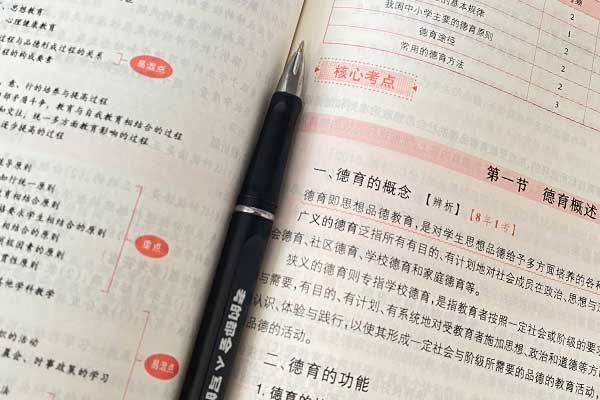 、思想教育
、心理健康教育
程与品德形成过程的关系
程的构成要素
易混点
、意、行的培养与提高过程
部矛盾斗争，教育与自我教育相结合的过程
和交往，统一多方面教育影响的过程
逐步提高的过程
导原则
知行统一原则
教育相结合原则
要求学生相结合的原则
相结合的原则
消极因素的原则
贯性原则
他学科教学
重点
的活动
展会、对事故真的学习
易混点
法
的基本规律
2
我国中小学主要的德育原则
1
德育途径
2
常用的德育方法
2
3
核心考点
第一节 德育概述
一、德育的概念 【辨析】【8年1考】
德育即思想品德教育，是对学生思想品德给予多方面培养的各种
广义的德育泛指所有有目的、有计划地对社会成员在政治、思想与
会德育、社区德育、学校德育和家庭德育等。
狭义的德育则专指学校德育，是指教育者按照一定社会或阶级的要求
与需要，有目的、有计划、有系统地对受教育者施加思想、政治和道德等方
认识、体验与践行，以使其形成一定社会与阶级所需要的品德的教育活动，
品德的活动。
二、德育的功能